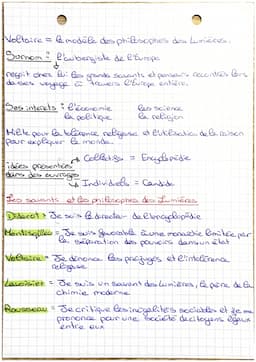 Voltaire = le modèle des philosophes des Lumières.
Surnom : l'aubergiste de l'Europe
reçoit chez lui les grands savants et penseurs rencontrés lors
de ses voyage à travers l'Europe entière.
Ses interets : l'économie les science
la politique la religion
Milite pour la tolérence religieuse et l'utilisation de la raison
pour expliquer le monde.
idées présentées
dans des ouvrages
→ Collectifs = Encyclopédie
→ Individuels = Candide
Les savants et les philosophes des Lumières
Diderot = Je suis le directeur de l'encyclopédie
Montesquieu = Je suis favorable à une monarchie limitée par
la séparation des pouvoirs dans un état
Voltaire = Je dénonce les préjugés et l'intolérance
religieuse
Lavoisier = Je suis un savant des Lumières, le père de la
chimie moderne
Rousseau = Je critique les inégalités sociables et je me
prononce pour une société de citoyens égaux
entre eux